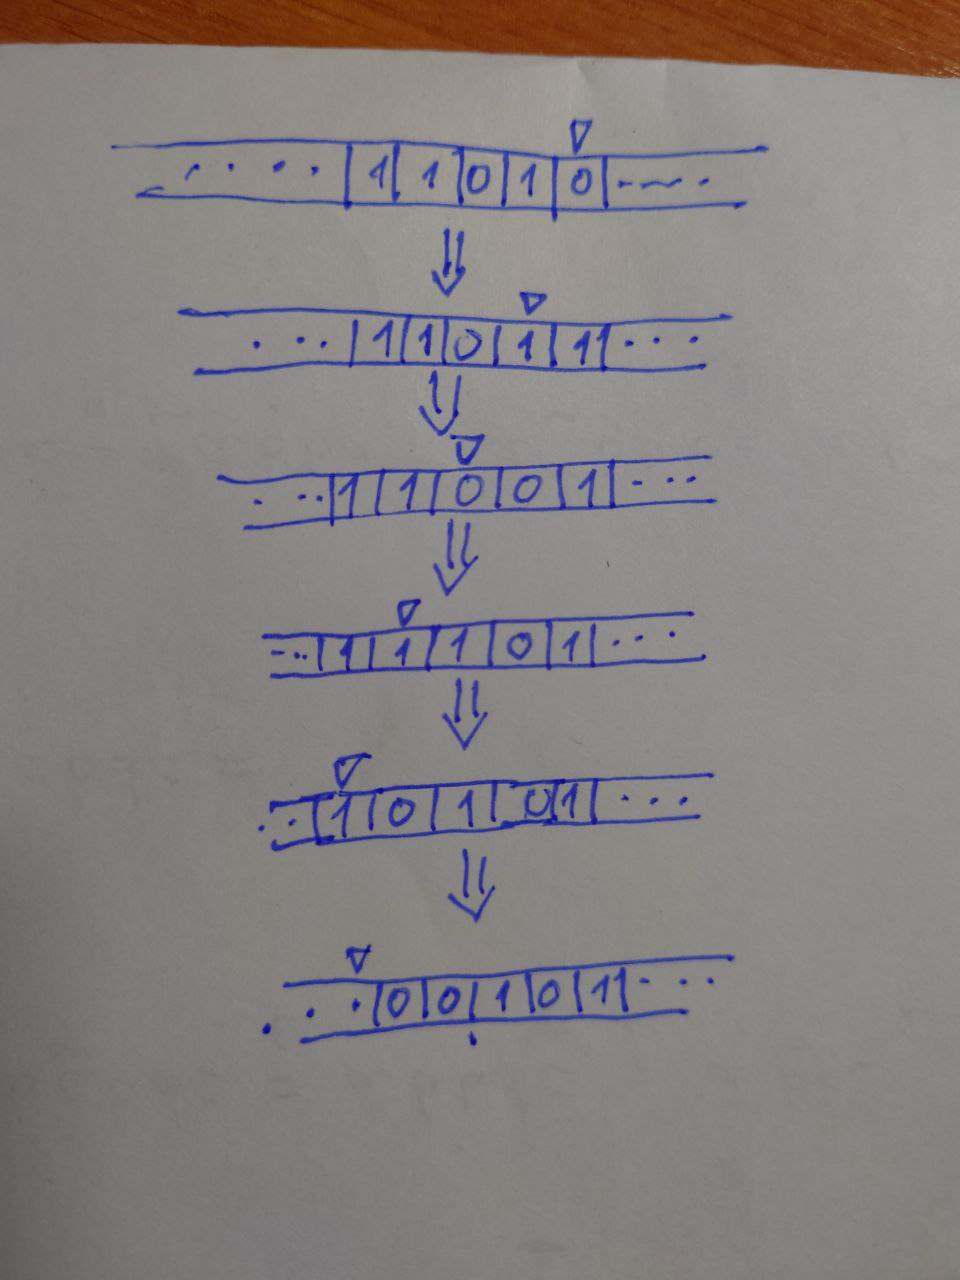 . . . . |1|1|0|1|0|-~~.
. . . |1|1|0|1|1| . . .
. . . |1|1|0|0|1| . . .
- . . |1|1|1|0|1| . . .
. . |1|0|1|0|1| . . .
. . . |0|0|1|0|1| . . .